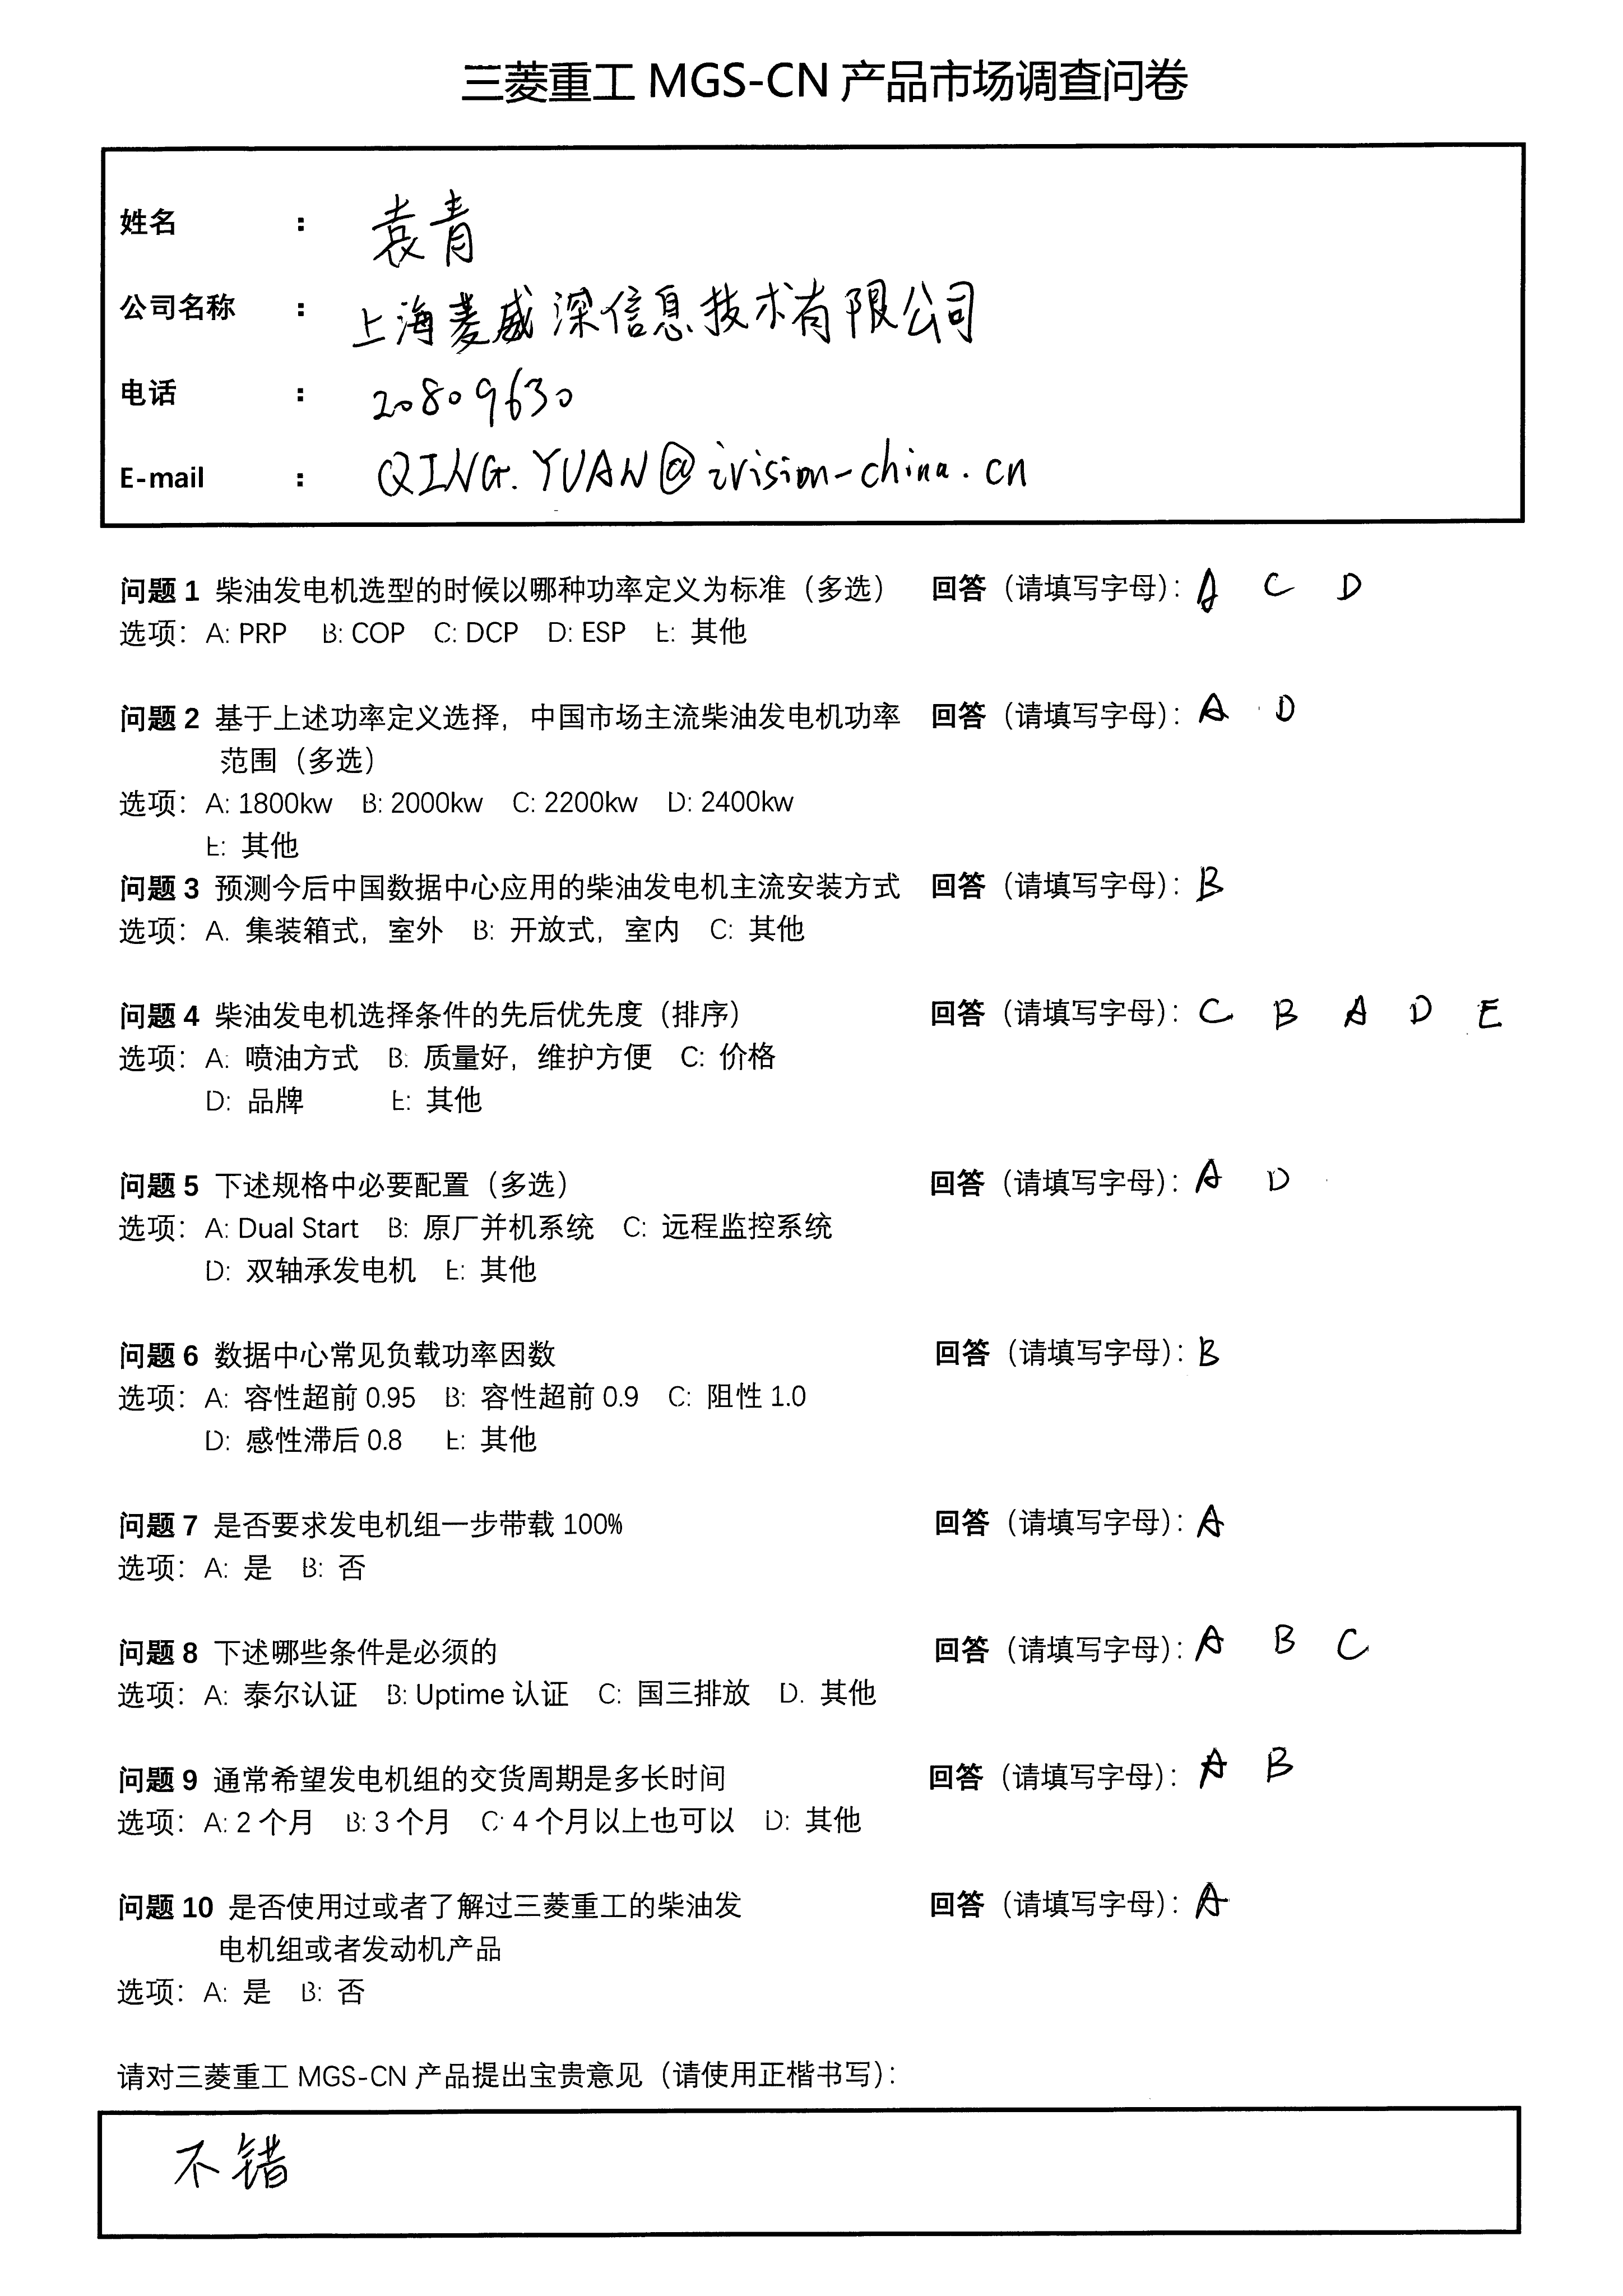 三菱重工 MGS-CN 产品市场调查问卷
姓名 : 袁青
公司名称 : 上海菱威深信息技术有限公司
电话 : 20809630
E-mail : QING.YUAN@ivision-china.cn
问题 1 柴油发电机选型的时候以哪种功率定义为标准（多选） 回答（请填写字母）: A C D
选项: A: PRP B: COP C: DCP D: ESP E: 其他
问题 2 基于上述功率定义选择，中国市场主流柴油发电机功率 回答（请填写字母）: A D
范围（多选）
选项: A: 1800kw B: 2000kw C: 2200kw D: 2400kw
E: 其他
问题 3 预测今后中国数据中心应用的柴油发电机主流安装方式 回答（请填写字母）: B
选项: A. 集装箱式，室外 B: 开放式，室内 C: 其他
问题 4 柴油发电机选择条件的先后优先度（排序） 回答（请填写字母）: C B A D E
选项: A: 喷油方式 B: 质量好，维护方便 C: 价格
D: 品牌 E: 其他
问题 5 下述规格中必要配置（多选） 回答（请填写字母）: A D
选项: A: Dual Start B: 原厂并机系统 C: 远程监控系统
D: 双轴承发电机 E: 其他
问题 6 数据中心常见负载功率因数 回答（请填写字母）: B
选项: A: 容性超前 0.95 B: 容性超前 0.9 C: 阻性 1.0
D: 感性滞后 0.8 E: 其他
问题 7 是否要求发电机组一步带载 100% 回答（请填写字母）: A
选项: A: 是 B: 否
问题 8 下述哪些条件是必须的 回答（请填写字母）: A B C
选项: A: 泰尔认证 B: Uptime 认证 C: 国三排放 D. 其他
问题 9 通常希望发电机组的交货周期是多长时间 回答（请填写字母）: A B
选项: A: 2 个月 B: 3 个月 C: 4 个月以上也可以 D: 其他
问题 10 是否使用过或者了解过三菱重工的柴油发 回答（请填写字母）: A
电机组或者发动机产品
选项: A: 是 B: 否
请对三菱重工 MGS-CN 产品提出宝贵意见（请使用正楷书写）:
不错